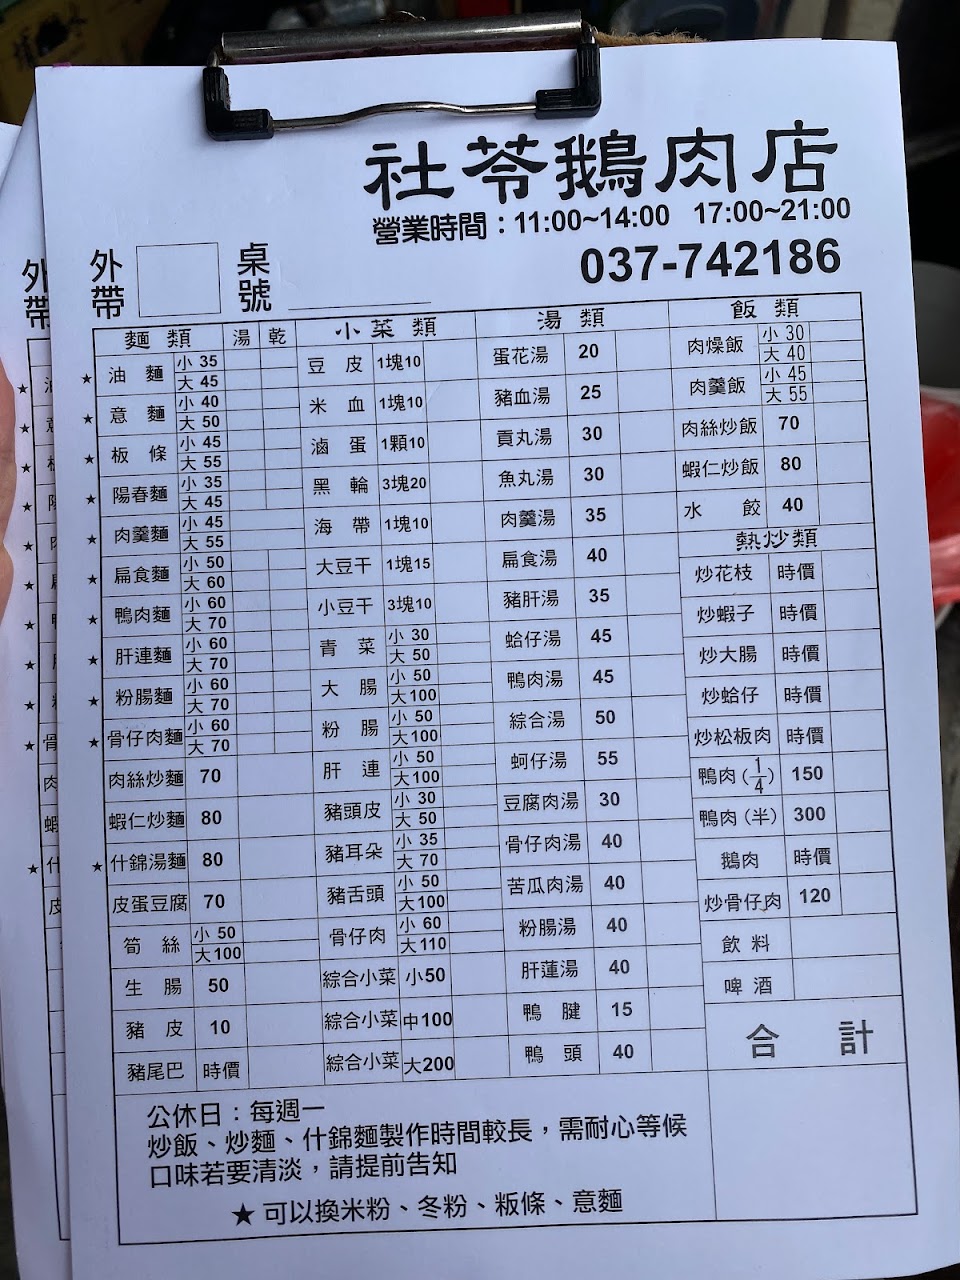 社苓鵝肉店
營業時間：11:00~14:00 17:00~21:00
037-742186
外帶
桌號
麵類 湯 乾
★ 油麵 小 35 大 45
★ 意麵 小 40 大 50
★ 板條 小 45 大 55
★ 陽春麵 小 35 大 45
★ 肉羹麵 小 45 大 55
★ 扁食麵 小 50 大 60
★ 鴨肉麵 小 60 大 70
★ 肝連麵 小 60 大 70
★ 粉腸麵 小 60 大 70
★ 骨仔肉麵 小 60 大 70
肉絲炒麵 70
蝦仁炒麵 80
★ 什錦湯麵 80
皮蛋豆腐 70
筍絲 小 50 大100
生腸 50
豬皮 10
豬尾巴 時價
小菜類
豆皮 1塊10
米血 1塊10
滷蛋 1顆10
黑輪 3塊20
海帶 1塊10
大豆干 1塊15
小豆干 3塊10
青菜 小 30 大 50
大腸 小 50 大100
粉腸 小 50 大100
肝連 小 50 大100
豬頭皮 小 30 大 50
豬耳朵 小 35 大 70
豬舌頭 小 50 大100
骨仔肉 小 60 大110
綜合小菜 小50
綜合小菜 中100
綜合小菜 大200
湯類
蛋花湯 20
豬血湯 25
貢丸湯 30
魚丸湯 30
肉羹湯 35
扁食湯 40
豬肝湯 35
蛤仔湯 45
鴨肉湯 45
綜合湯 50
蚵仔湯 55
豆腐肉湯 30
骨仔肉湯 40
苦瓜肉湯 40
粉腸湯 40
肝蓮湯 40
鴨腱 15
鴨頭 40
飯類
肉燥飯 小 30 大 40
肉羹飯 小 45 大 55
肉絲炒飯 70
蝦仁炒飯 80
水餃 40
熱炒類
炒花枝 時價
炒蝦子 時價
炒大腸 時價
炒蛤仔 時價
炒松板肉 時價
鴨肉(1/4) 150
鴨肉(半) 300
鵝肉 時價
炒骨仔肉 120
飲料
啤酒
合計
公休日：每週一
炒飯、炒麵、什錦麵製作時間較長，需耐心等候
口味若要清淡，請提前告知
★ 可以換米粉、冬粉、粄條、意麵